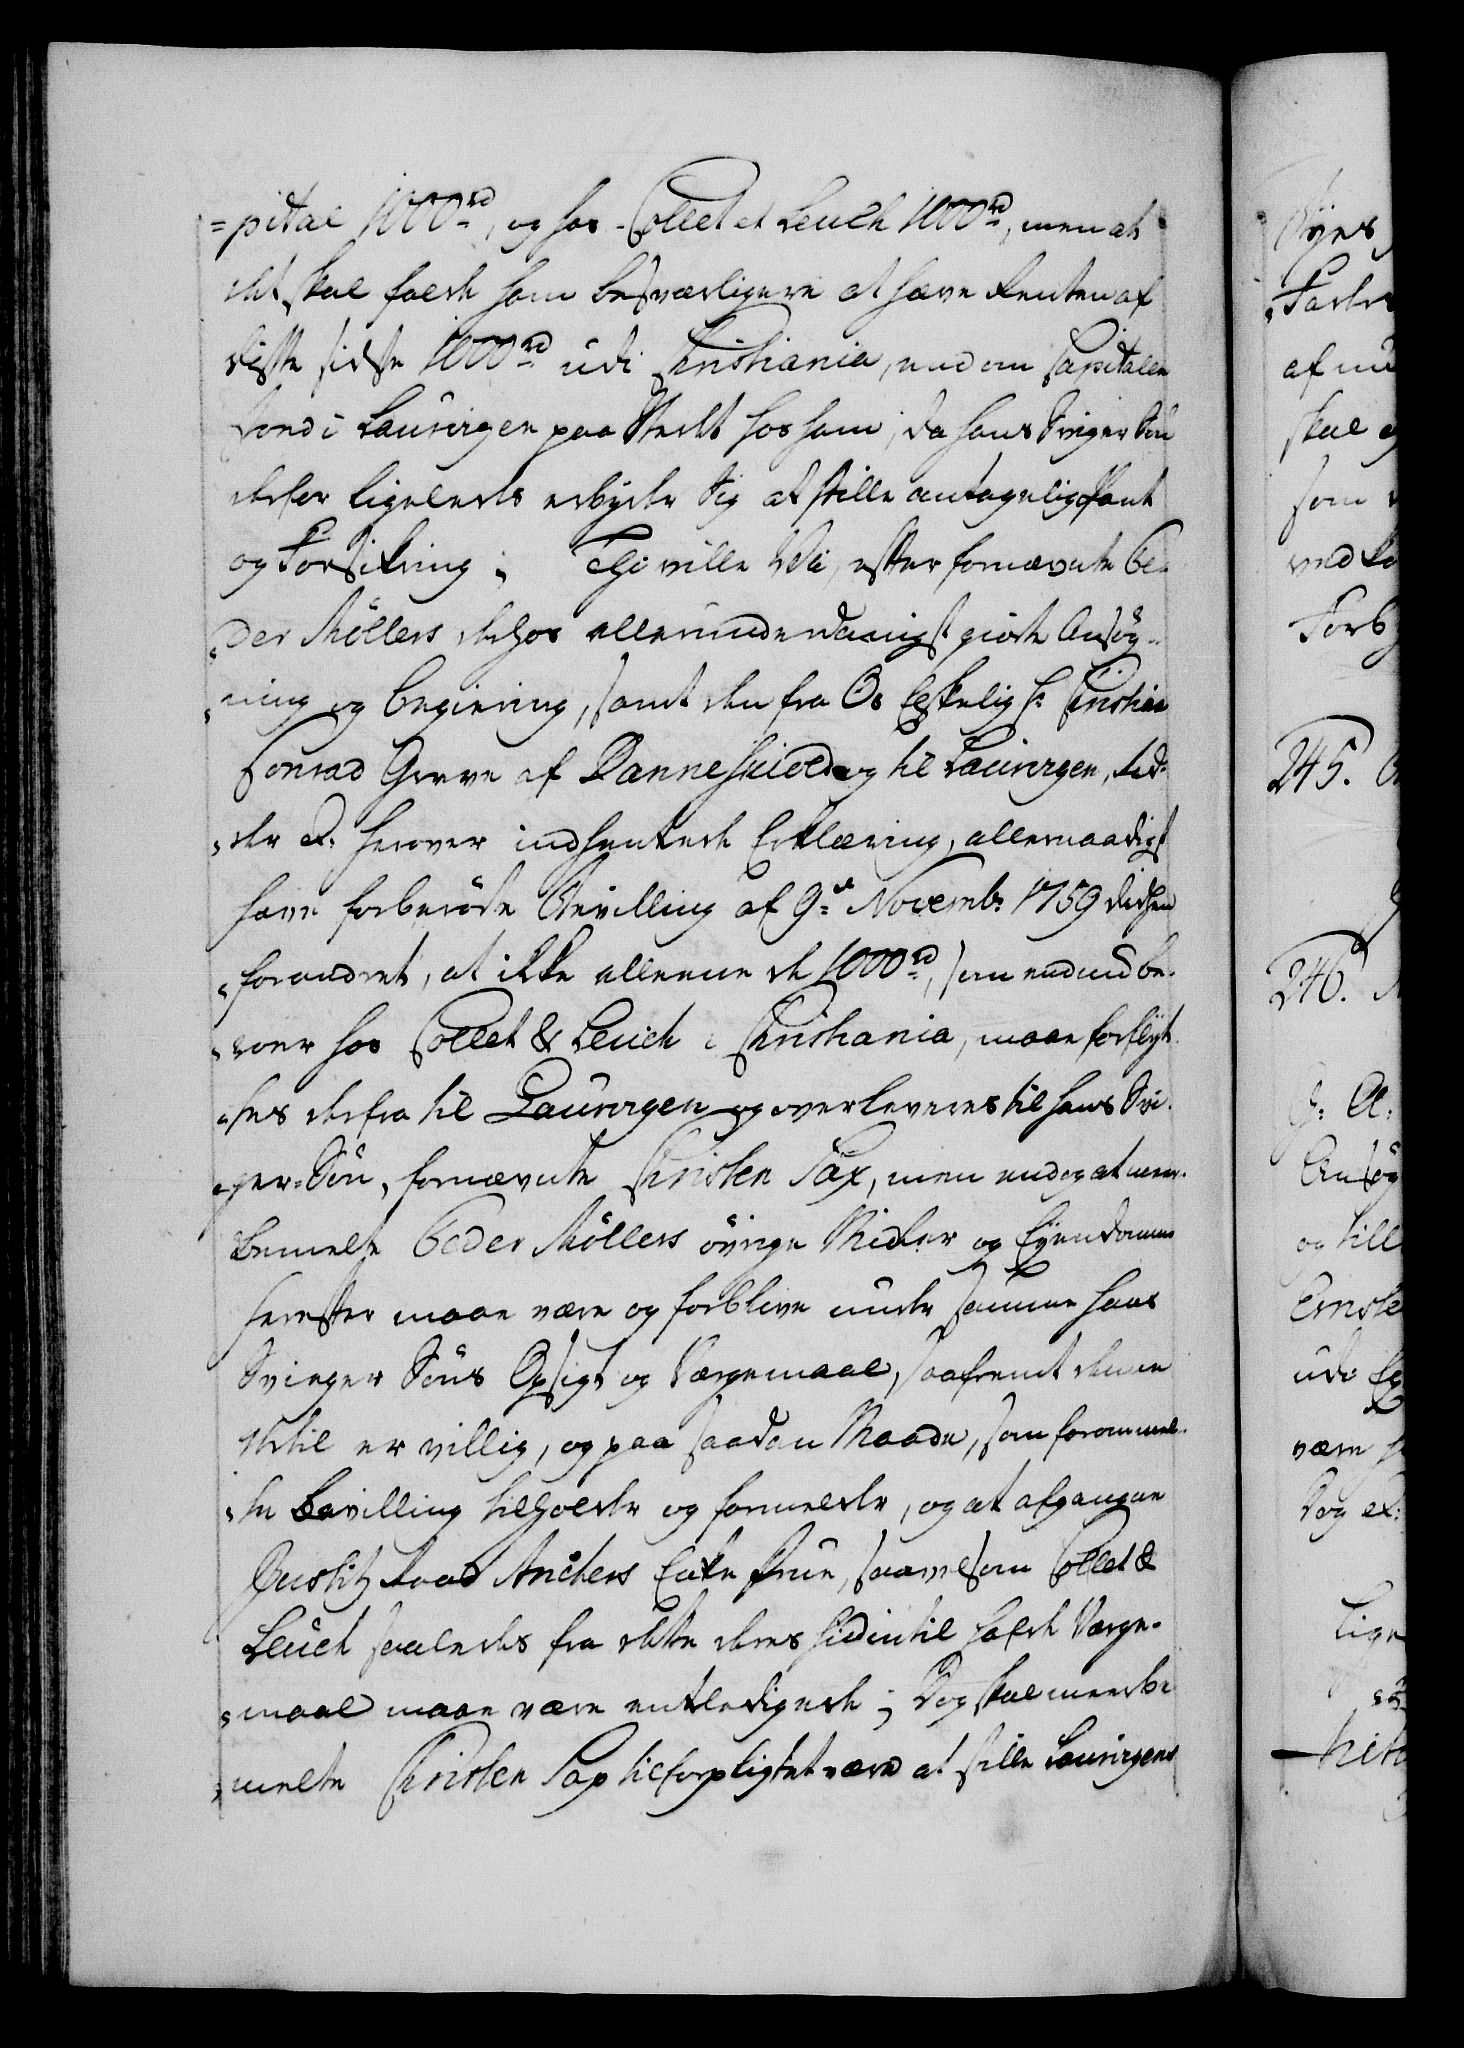 =pital 1000rd, og hos Collet et Leuch 1000rd, men at
det skal falde ham besværligere at hæve Renten af
disse sidste 1000rd udi Christiania, end om Capitalen
stod i Laurvigen paa Rente hos ham, da hans Svigersön
derfor ligeledes erbyder sig at stille antagelig Pant
og Forsikring; Thi ville Vi, efter fornævnte Pe-
=der Möllers derhos allerunderdanigst giorte Ansög-
=ning og Begiering, samt den fra Os elskelig Hr Christian
Conrad Greve af Danneskiold og til Laurvigen, Rid-
=der &. herover indhentede Erklæring, allernaadigst
have forberörte Bevilling af 9de Novembr 1759 didhen
=forandret, at ikke alleene de 1000rd, som endnu be-
=roer hos Collet & Leuch i Christiania, maae forflyt-
=tes derfra til Laurvigen og overleveres til hans Svi-
=ger-Sön, fornævnte Christen Sax, men endog at meer-
bemelte Peder Möllers övrige Midler og Eyendomme
herefter maae være og forblive under samme hans
Svieger Söns Opsigt og Værgemaal, saafremt denne
dertil er villig, og paa saadan Maade, som forommel-
=te Bevilling tilholder og formelder, og at afgangne
Justitz Raad Anchers Enke Frue, saavelsom Collet &
Leuch saaledes fra dette deres hidindtil hafde Værge-
=maal maae være entledigede; Dog skal meerbe
=melte Christen Sax tilforpligtet være at stille Laurvigens